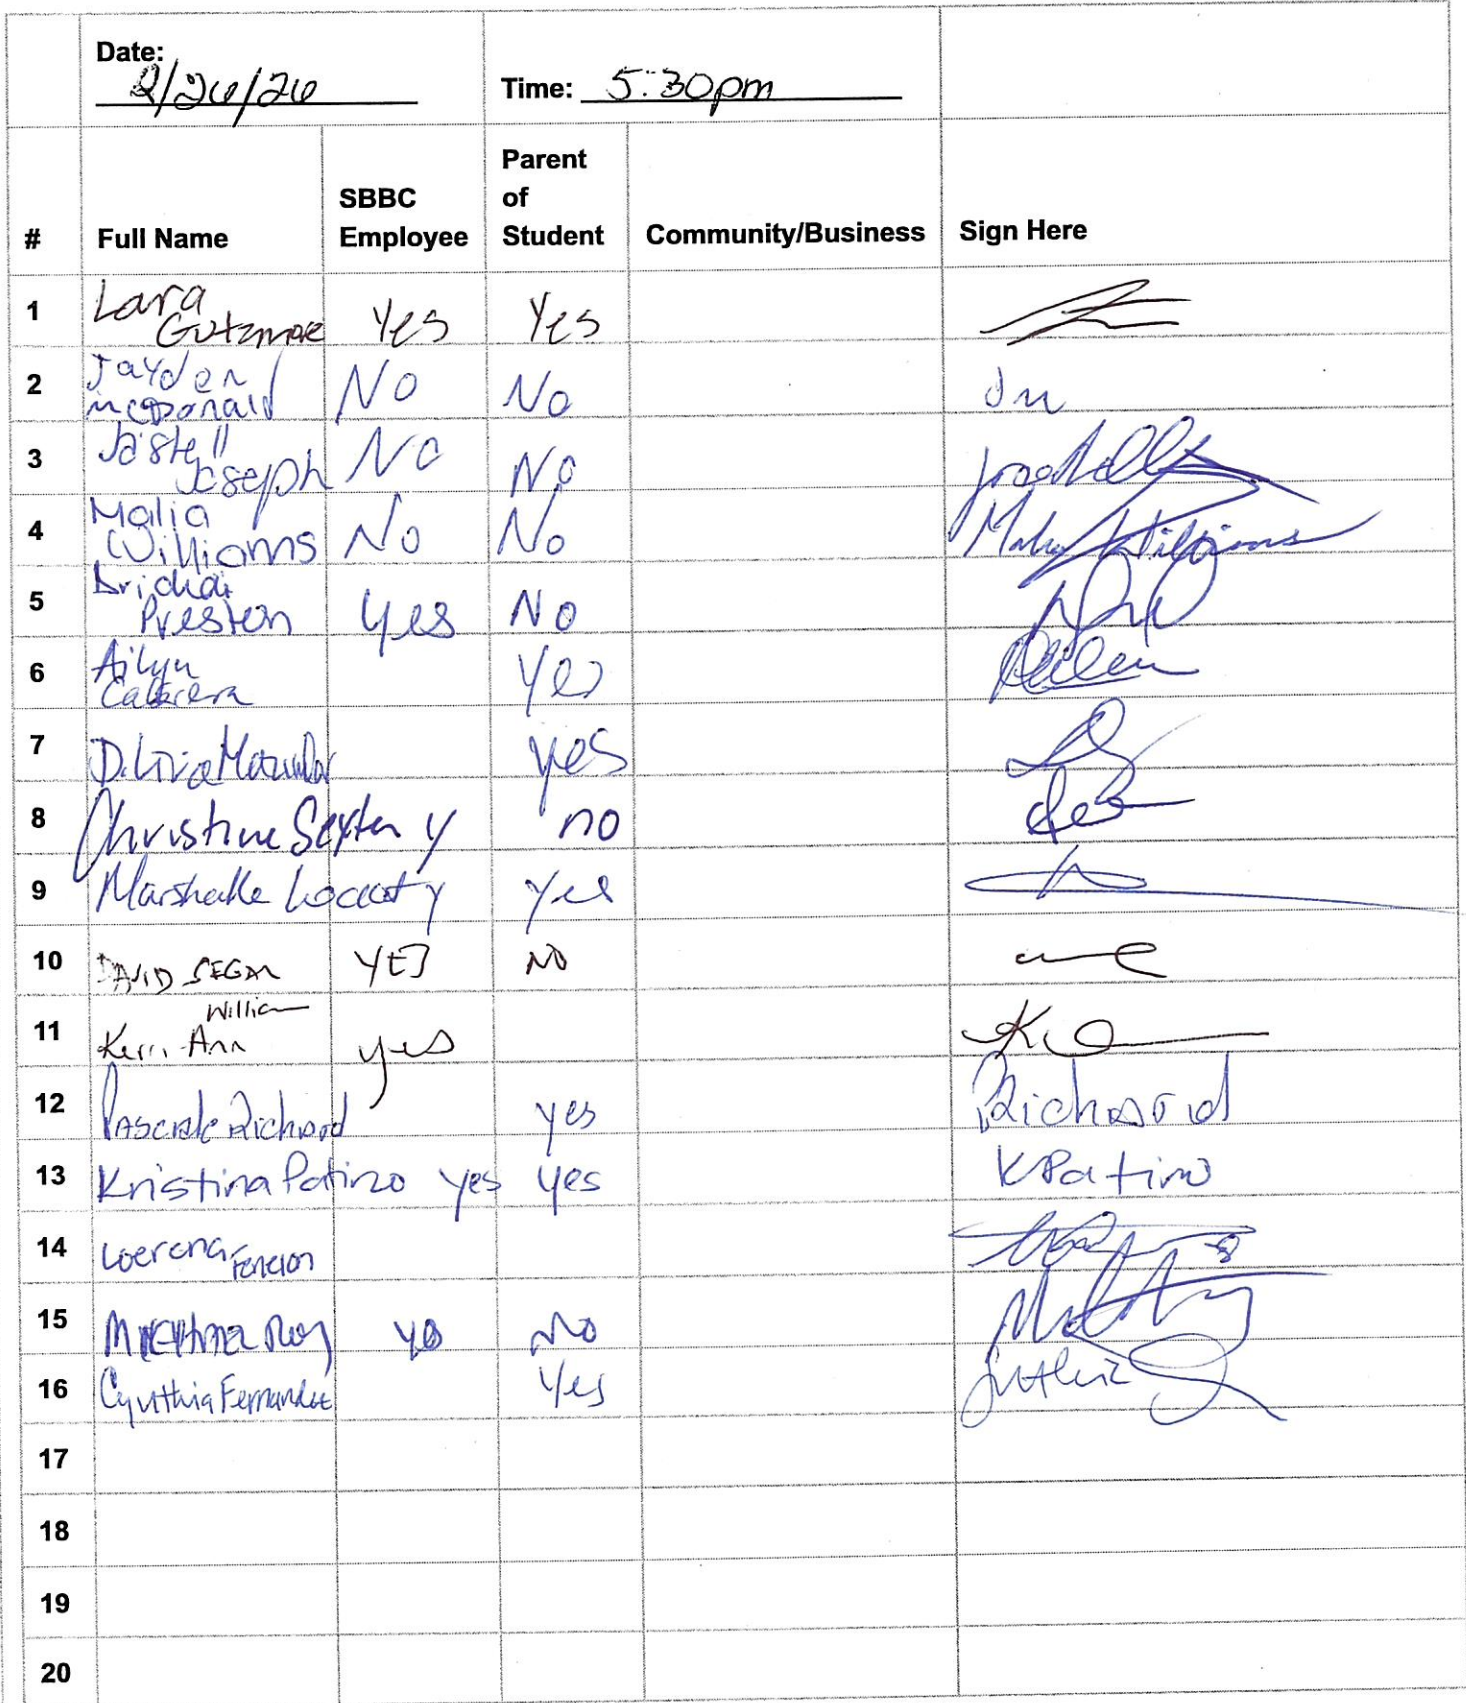 Date: 2/26/26 Time: 5:30pm
# Full Name SBBC Employee Parent of Student Community/Business Sign Here
1 Lara Gutzmore Yes Yes
2 Jayden mcDonald No No Jm
3 Jastell Joseph No No
4 Malia Williams No No Malia Williams
5 Preston Yes No
6 Ailyn Cabrera Yes
7 yes
8 Christine Sexton y no
9 y Yes
10 DAVID SEGAL YES NO
11 Kerri-Ann William yes
12 Pascale Richard yes Richard
13 Kristina Patino yes yes KPatino
14
15 No
16 Cynthia Fernandez Yes
17
18
19
20